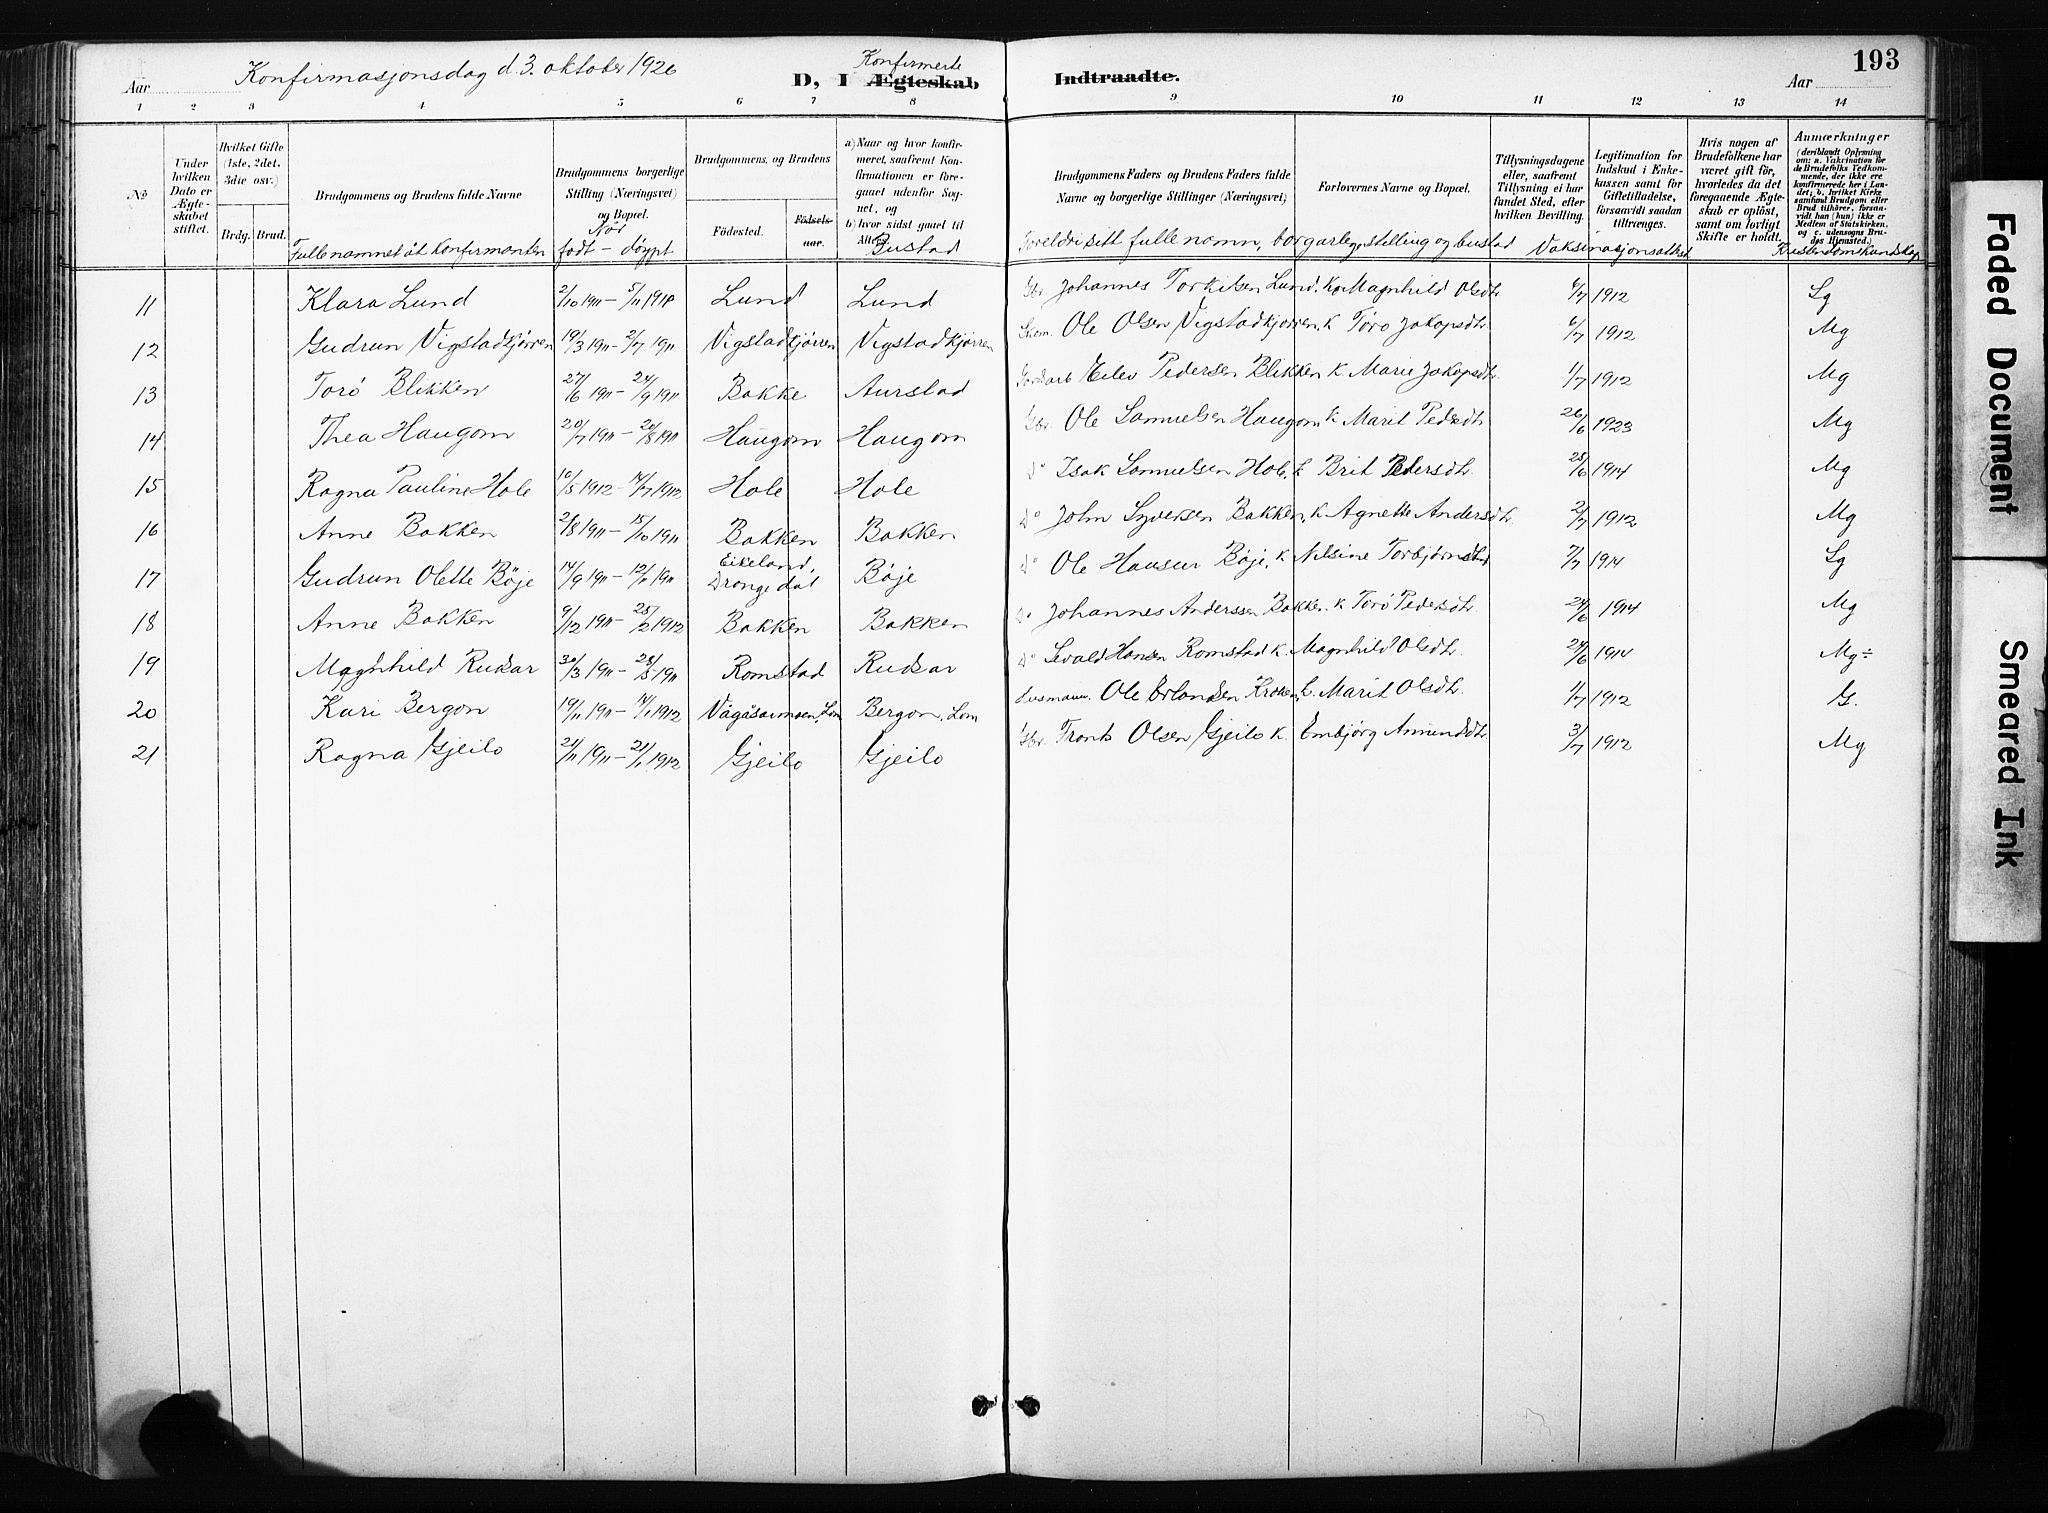 Konfirmasjonsdag d. 3. oktober 1926
Konfirmerte
193
Aar
D, I Ægteskab
Indtraadte.
Aar
1 2 3 4 5 6 7 8 9 10 11 12 13 14
No
Under hvilken Dato er Ægteskabet stiftet.
Hvilket Gifte (1ste, 2det, 3die osv.)
Brdg. Brud.
Brudgommens og Brudens fulde Navne
Fulle namnet åt konfirmanten
Brudgommens borgerlige Stilling (Næringsvei) og Bopæl.
Når
født – døypt
Brudgommens og Brudens
Födested.
Födselsaar.
a) Naar og hvor konfirmeret, saafremt Konfirmationen er foregaaet udenfor Sognet, og
b) hvor sidst gaaet til Alters.
Bustad
Brudgommens Faders og Brudens Faders fulde Navne og borgerlige Stillinger (Næringsvei)
Forlovernes Navne og Bopæl.
Foreldri sitt fulle namn, borgarlege stilling og bustad
Tillysningsdagene eller, saafremt Tillysning ei har fundet Sted, efter hvilken Bevilling.
Legitimation for Indskud i Enkekassen samt for Giftetilladelse, forsaavidt saadan tiltrænges.
Vaksinasjonsattest
Hvis nogen af Brudefolkene har været gift för, hvorledes da det foregaaende Ægteskab er oplöst, samt om lovligt Skifte er holdt.
Anmærkninger
(deriblandt Oplysning om: a. Vakcination for de Brudefolks Vedkommende, der ikke ere konfirmerede her i Landet; b. hvilket Kirkesamfund Brudgom eller Brud tilhörer, forsaavidt han (hun) ikke er Medlem af Statskirken, og c. udensogns Brudgoms Hjemsted.)
Kristendomskundskap
11 Klara Lund 2/10 1911 – 5/11 1911 Lund Lund Gbr. Johannes Torkilsen Lund, k. Magnhild Olsdtr. 6/7 1912 Sg
12 Gudrun Vigstadkjørren 19/3 1911 – 2/7 1911 Vigstadkjørren Vigstadkjørren Ole Olsen Vigstadkjørren, k Torø Jakopsdtr. 6/7 1912 Mg
13 Torø Blikken 27/6 1911 – 24/9 1911 Bakke Aurstad Jordarb Eilev Pedersen Blikken k Marie Jakopsdtr. 1/7 1912 Mg
14 Thea Haugom 20/7 1911 – 20/8 1911 Haugom Haugom Gbr. Ole Samuelsen Haugom, k Marit Pedersdtr. 26/6 1923 Mg
15 Ragna Pauline Hole 10/5 1912 – 14/7 1912 Hole Hole Do Isak Samuelsen Hole, k Brit Pedersdtr. 25/6 1914 Mg
16 Anne Bakken 2/8 1911 – 15/10 1911 Bakken Bakken Do John Syversen Bakken, k Agnette Andersdtr. 2/7 1912 Mg
17 Gudrun Olette Bøje 14/9 1911 – 12/11 1911 Eikeland, Drangedal Bøje Do Ole Hansen Bøje, k Nilsine Torbjørnsdtr. 7/7 1914 Sg
18 Anne Bakken 9/12 1911 – 25/2 1912 Bakken Bakken Do Johannes Anderssen Bakken, k Torø Pedersdtr. 24/6 1914 Mg
19 Magnhild Rudsar 30/3 1911 – 28/5 1911 Romstad Rudsar Do Sevald Hansen Romstad k. Magnhild Olsdtr. 24/6 1914 Mg÷
20 Kari Bergom 19/11 1911 – 14/1 1912 Vågåsarmoen, Lom Bergom, Lom Husmann Ole Erlandsen Kroken, k. Marit Olsdtr. 1/7 1912 G.
21 Ragna Gjeilo 21/11 1911 – 21/1 1912 Gjeilo Gjeilo Gbr. Tronh Olsen Gjeilo k. Embjørg Amundsdtr. 3/7 1912 Mg
Faded Document
Smeared Ink